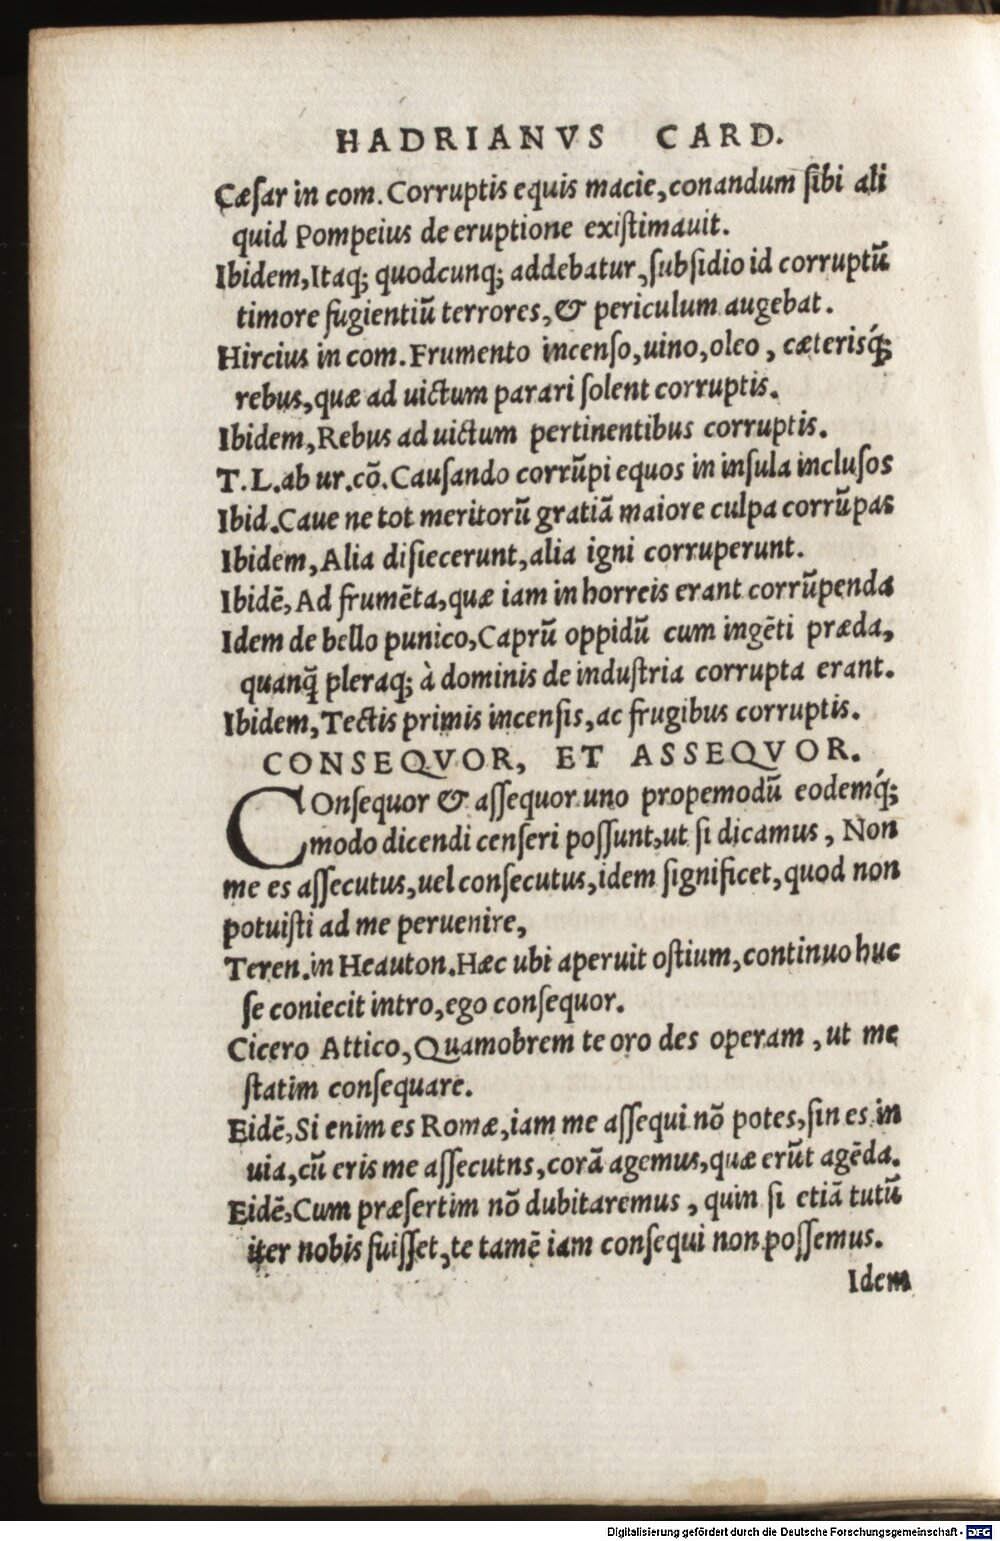 HADRIANVS CARD.
Cæſar in com. Corruptis equis macie, conandum ſibi ali
quid Pompeius de eruptione exiſtimauit.
Ibidem, Itaq; quodcunq; addebatur, ſubſidio id corruptū
timore fugientiū terrores, & periculum augebat.
Hircius in com. Frumento incenſo, uino, oleo, cæterisq́;
rebus, quæ ad uictum parari ſolent corruptis.
Ibidem, Rebus ad uictum pertinentibus corruptis.
T. L. ab ur. cō. Cauſando corrūpi equos in inſula incluſos
Ibid. Caue ne tot meritorū gratiā maiore culpa corrūpas
Ibidem, Alia diſiecerunt, alia igni corruperunt.
Ibidē, Ad frumēta, quæ iam in horreis erant corrūpenda
Idem de bello punico, Caprū oppidū cum ingēti præda,
quanq̄ pleraq; à dominis de induſtria corrupta erant.
Ibidem, Tectis primis incenſis, ac frugibus corruptis.
CONSEQVOR, ET ASSEQVOR.
COnſequor & aſſequor uno propemodū eodemq́;
modo dicendi cenſeri poſſunt, ut ſi dicamus, Non
me es aſſecutus, uel conſecutus, idem ſignificet, quod non
potuiſti ad me peruenire,
Teren. in Heauton. Hæc ubi aperuit oſtium, continuo huc
ſe coniecit intro, ego conſequor.
Cicero Attico, Quamobrem te oro des operam, ut me
ſtatim conſequare.
Eidē, Si enim es Romæ, iam me aſſequi nō potes, ſin es in
uia, cū eris me aſſecutns, corā agemus, quæ erūt agēda.
Eidē, Cum præſertim nō dubitaremus, quin ſi etiā tutū
iter nobis fuiſſet, te tamē iam conſequi non poſſemus.
Idem
Digitalisierung gefördert durch die Deutsche Forschungsgemeinschaft - DFG